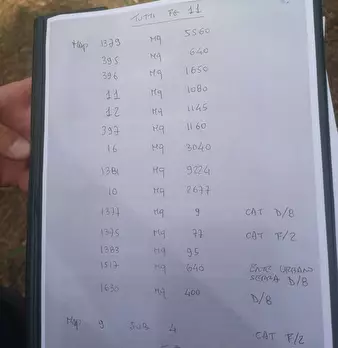 TUTTI FG 11
Map 1379 MQ 5560
395 MQ 640
396 MQ 1650
11 MQ 1080
12 MQ 1145
397 MQ 1160
16 MQ 3040
1381 MQ 9224
10 MQ 2677
1377 MQ 9 CAT D/8
1375 MQ 77 CAT F/2
1383 MQ 95
1517 MQ 640 ENTE URBANO
D/8
1630 MQ 400 D/8
Map 9 SUB 4 CAT F/2